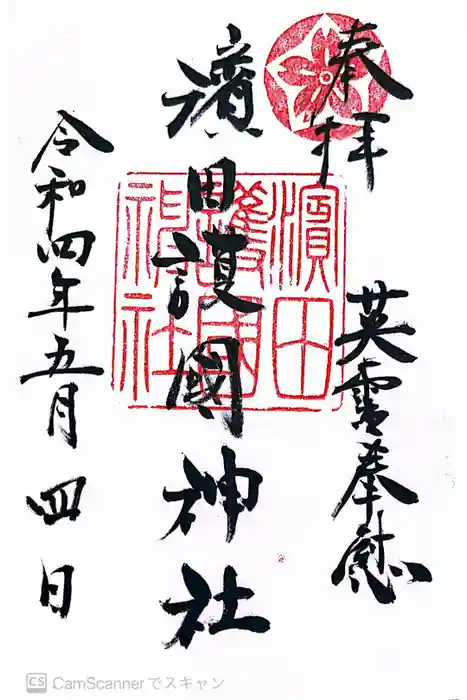 奉拝
英霊奉慰
濱田護國神社
濱田
護國
神社
令和四年五月四日
CamScannerでスキャン